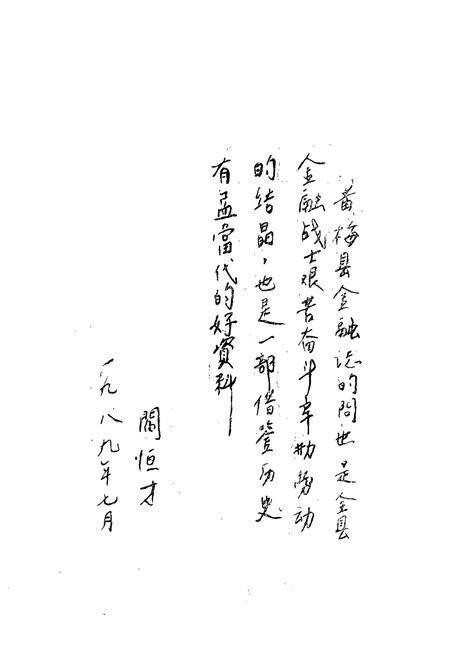 黄梅县金融志的问世是全县
金融战士艰苦奋斗辛勤劳动
的结晶,也是一部借鉴历史
有益當代的好資料
閻恒才
一九八九年七月